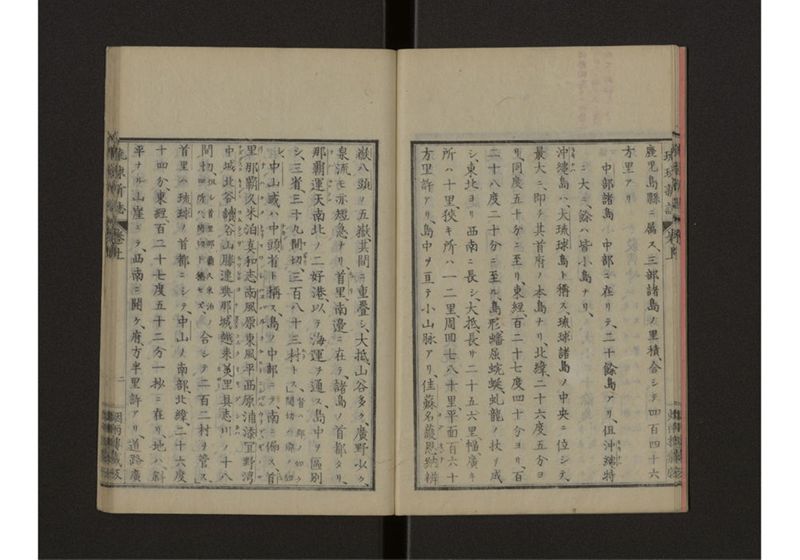 鹿児島縣ニ属ス三部諸島ノ里積、合シテ四百四十六
方里アリ
中部諸島ハ中部ニ在リテ、二十餘島アリ、但沖縄特
ニ大ニ、餘ハ皆小島ナリ、
沖縄島ハ大琉球島ト稱ス、琉球諸島ノ中央ニ位シテ、
最大ニ、即チ其首府ノ本島ナリ、北緯二十六度五分ヨ
リ、同度五十分ニ至リ、東經百二十七度四十分ヨリ、百
二十八度二十分ニ至ル、島形蟠屈蜿蜒虬龍ノ状ヲ成
シ、東北ヨリ西南ニ長シ、大抵長サ二十五六里、幅廣キ
所ハ十里、狹キ所ハ一二里、周四七八十里、平面百六十
方里許アリ、島中ヲ亘テ小山脉アリ、佳蘇名嚴恩
嶽八頭ヲ五嶽其間ニ重疊シ、大抵山谷多ク、廣野少ク、
泉流モ亦短急ナリ、首里南邊ニ在ラ、諸島ノ首都タリ、
那覇運天南北ノ二好港、以テ海運ヲ通ス、島中ヲ區別
シ、三省三十九間切、三百八十三村トス
中山或ハ中頭省ト稱ス、島ノ中部ニテ南ニ偏ス、首
里那覇久米泊真和志南風原東風平西原浦添宜野湾
中城北谷讀谷山勝連與那城越来美里具志川ノ十八
間切 合シテ二百二村ヲ管ス、
首里ハ琉球ノ首都ニシテ、中山ノ南部、北緯二十六度
十四分東經百二十七度五十二分一抄ニ在リ、地ハ斜
平ナル山崖ニテ、西南ニ開ケ、府方半里許アリ、道路廣